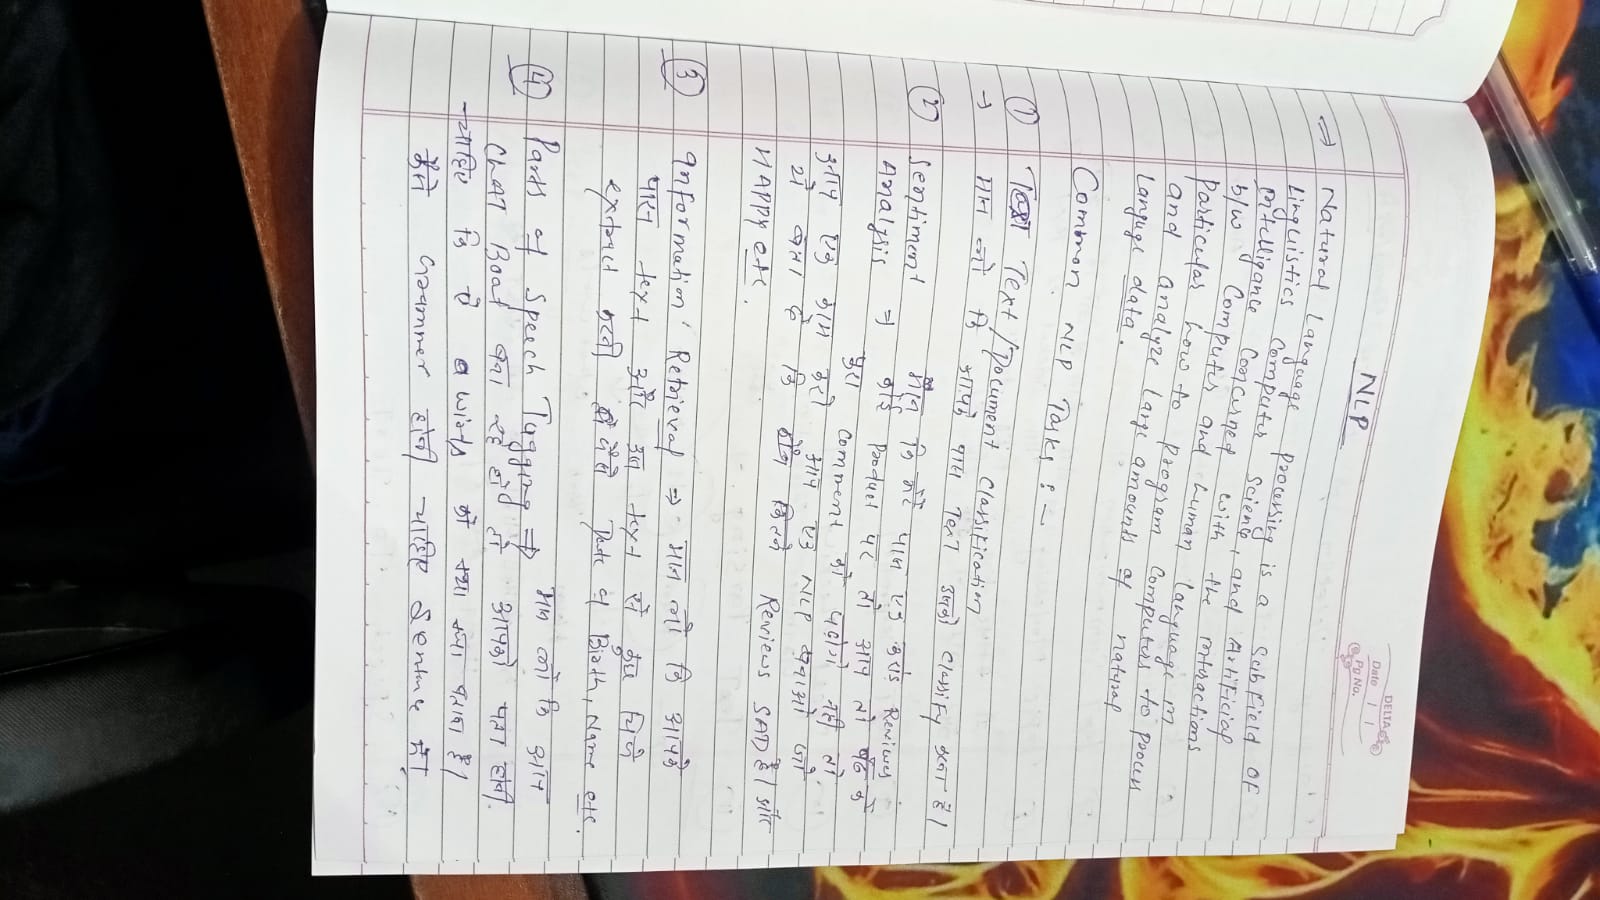 DELTA
Date
Pg No.
NLP
⇒ Natural Language processing is a Subfield of
Linguistics Computer
Intelligance Concurned with the interactions
b/w Computers and human language in
Particular how to program computers to process
and analyze large amounts of natural
language data.
Common NLP Tasks :-
① Text / Document Classification
→ मान लो कि आपके पास Text उसको classify करता है।
② Sentiment Analysis ⇒ मान कि मेरे पास एक Reviews
कोई Product पर तो आप तो पढ़ के
पुरा Comment को पढ़ोगे नहीं तो
आप एक काम करो आप एक NLP बनाओ जो
ये बता दे कि कौन कितने Reviews SAD है। और
HAPPY etc.
③ Information Retrieval ⇒ मान लो कि आपके
पास text और उस text से कुछ चिजे
extract करनी है जैसे Date of Birth, Name etc.
④ Parts of Speech Tagging ⇒ मान लो कि आप
Chat Boat बना रहे हो तो आपको पता होना
चाहिए कि ये words को क्या क्या
कैसे Grammer होनी चाहिए Sentence में